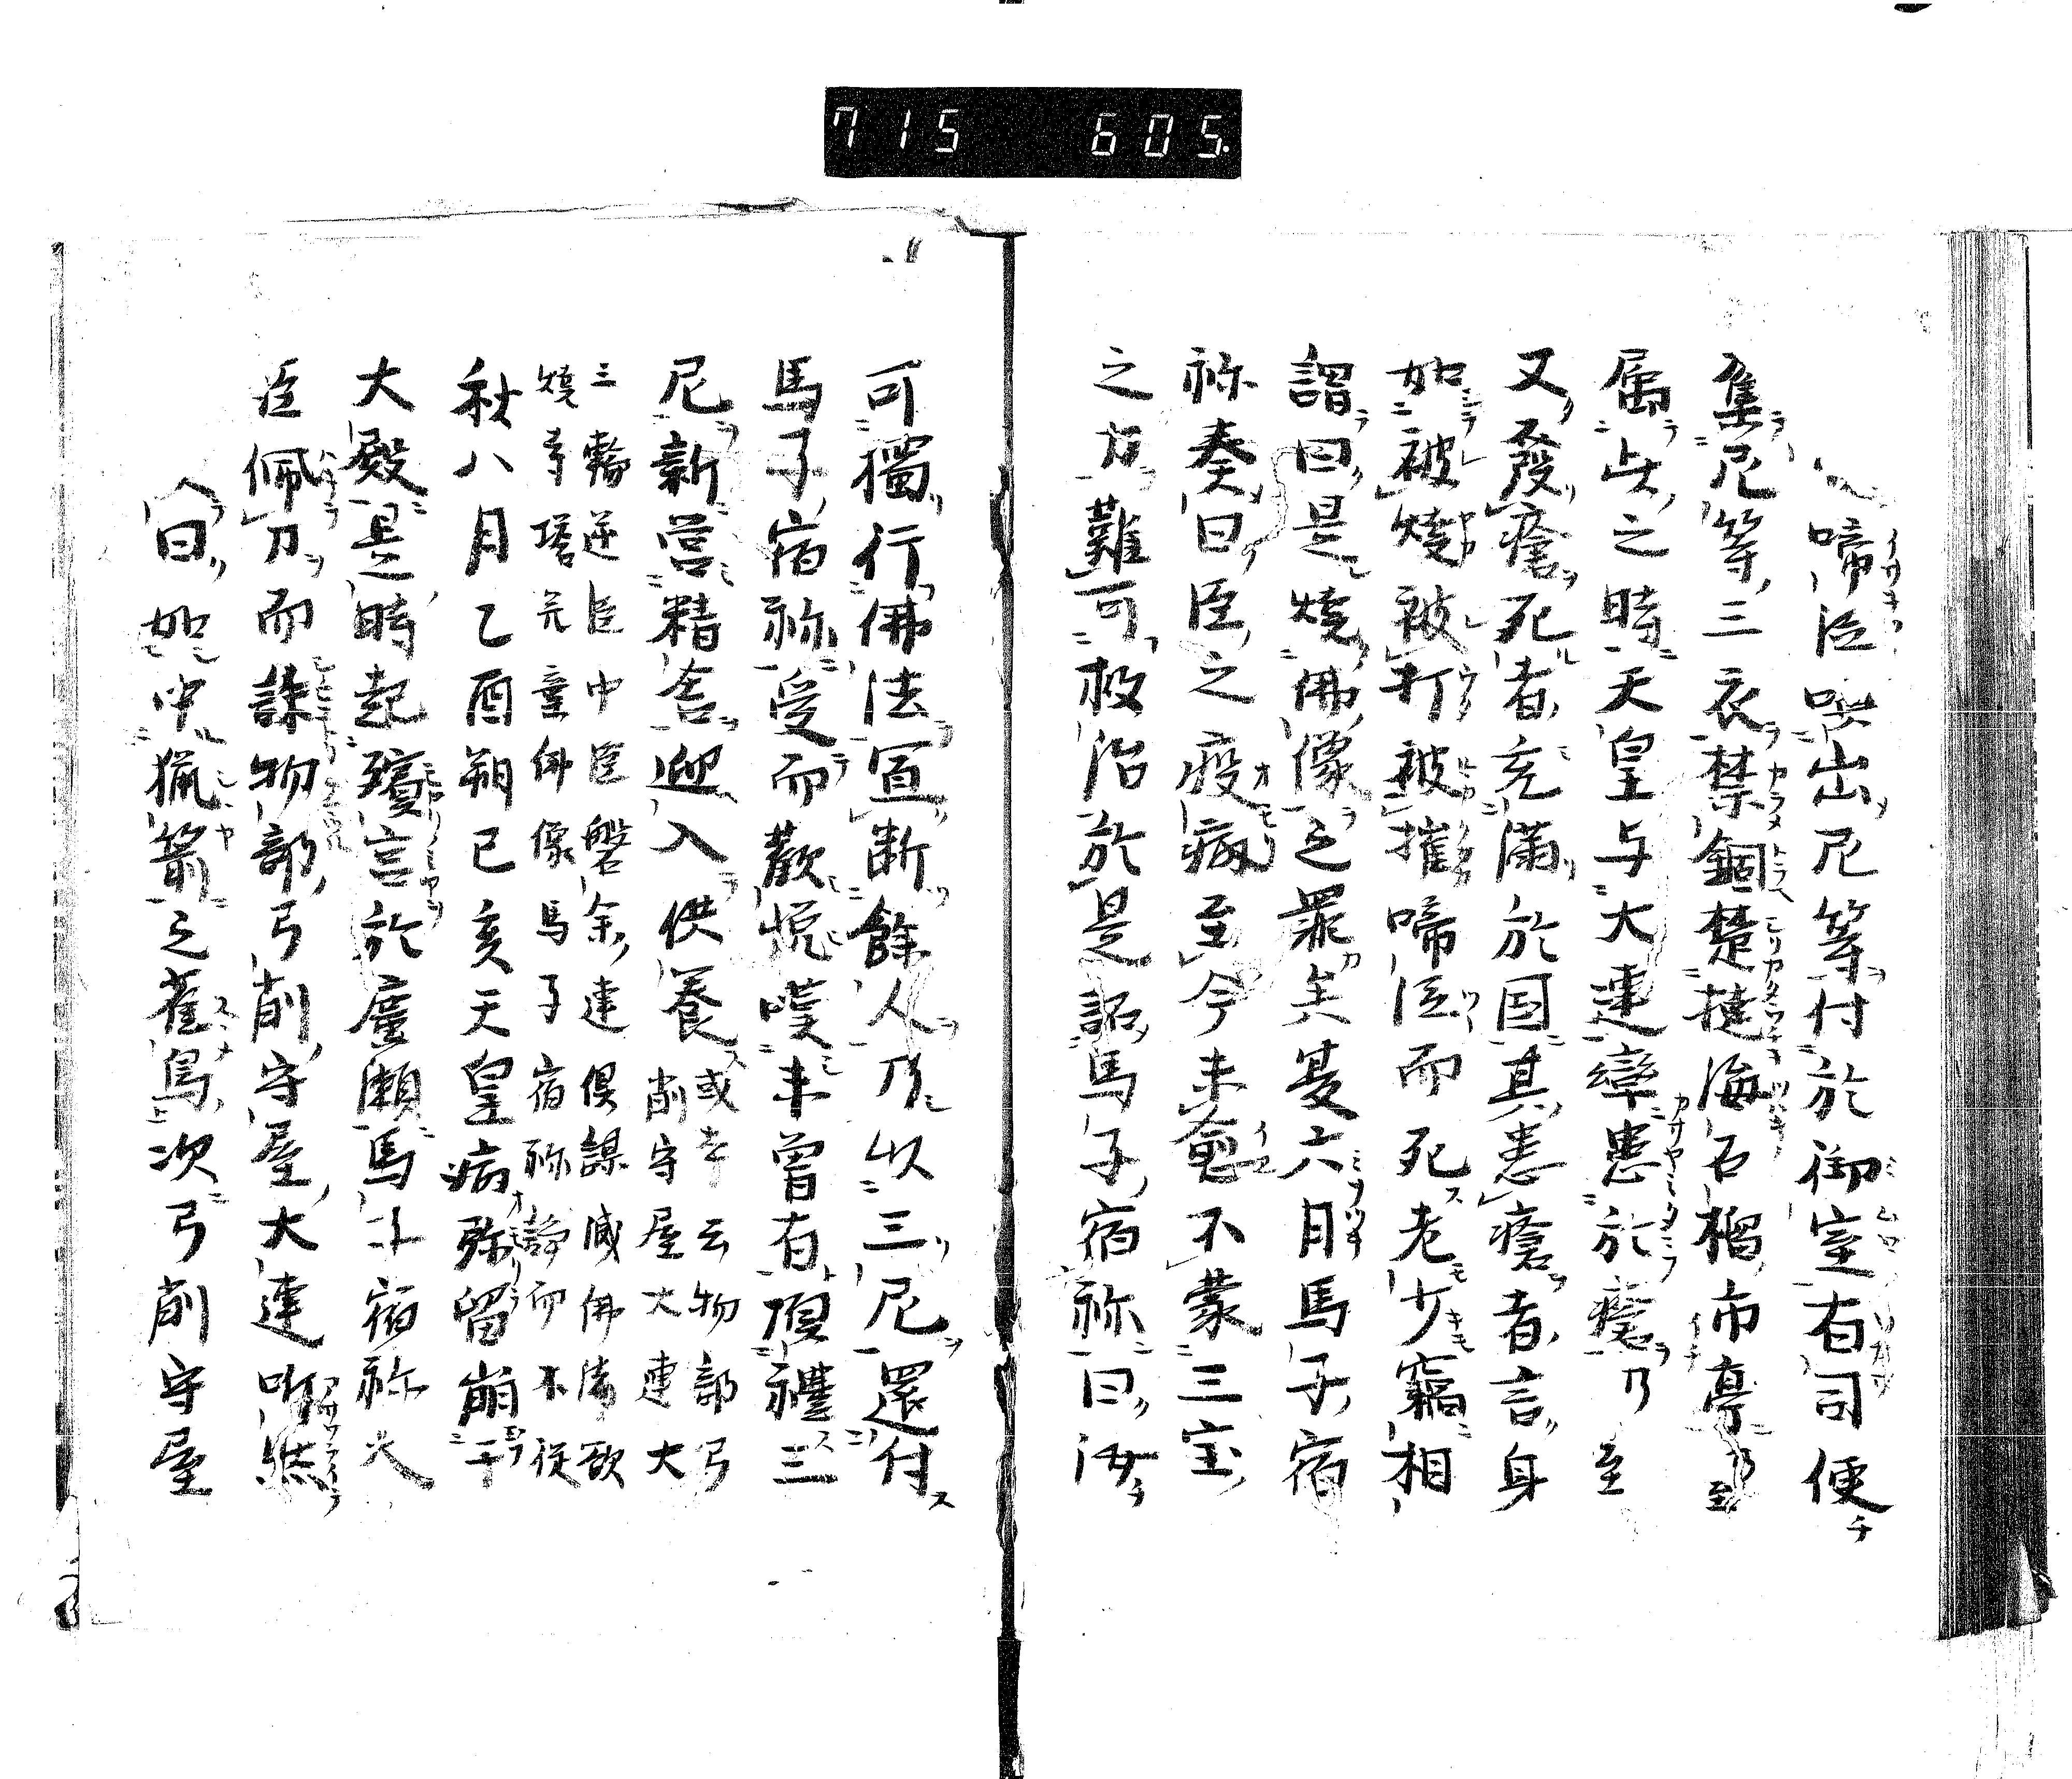 715 605.
啼泣哄出尼等付於御室有司便
集尼等三衣禁錮楚撻海石榴市亭乃至
属此之時天皇与大連卒患於瘡乃至
又發瘡死者充滿於国其患瘡者言身
如被燒被打被摧啼泣而死老少竊相
謂曰是燒佛像之罪矣夏六月馬子宿
祢奏曰臣之疫病至今未愈不蒙三宝
之力難可救治於是詔馬子宿祢曰汝
可獨行佛法宜断餘人乃以三尼還付
馬子宿祢受而歡悦嘆未曾有頂禮三
尼新営精舎迎入供養
或本云物部弓
削守屋大連大
三輪逆臣中臣磐余連倶謀滅佛法欲
燒寺塔并棄佛像馬子宿祢諍而不従
秋八月乙酉朔己亥天皇病弥留崩于
大殿是時起殯宮於廣瀬馬子宿祢大
臣佩刀而誄物部弓削守屋大連听然
曰如中猟箭之雀鳥次弓削守屋